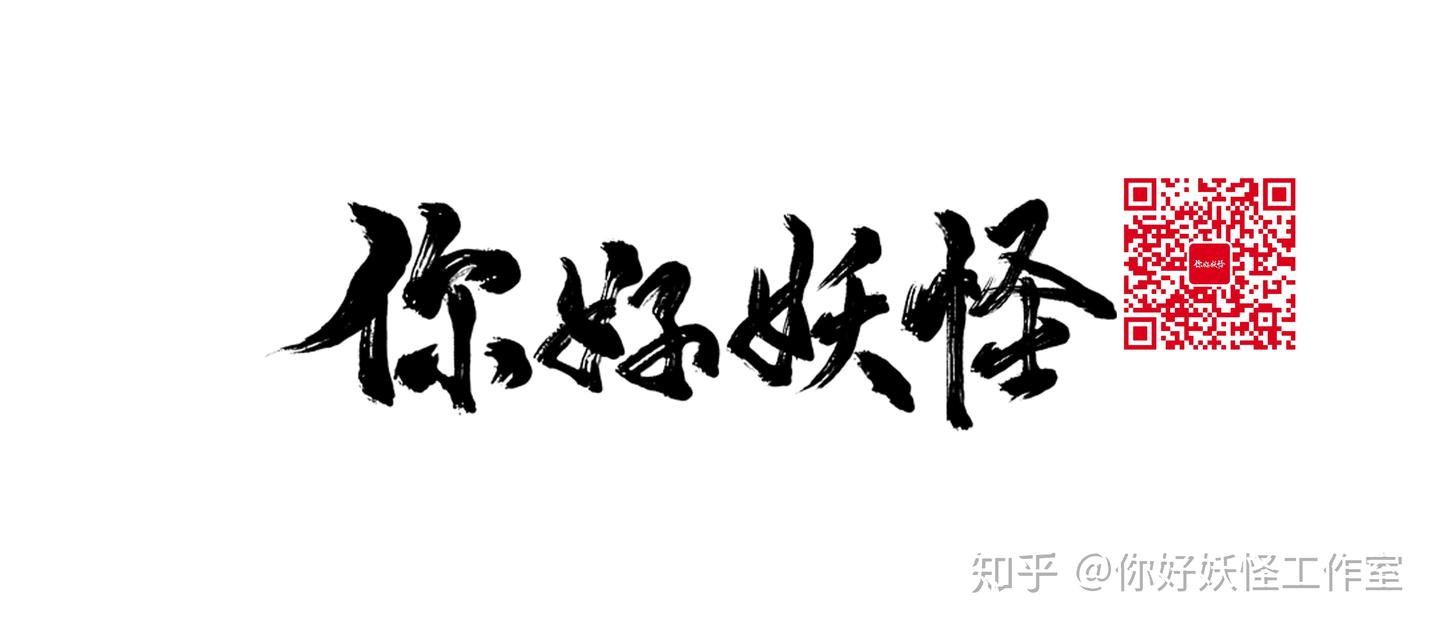 你好妖怪
你好妖怪
知乎 @你好妖怪工作室